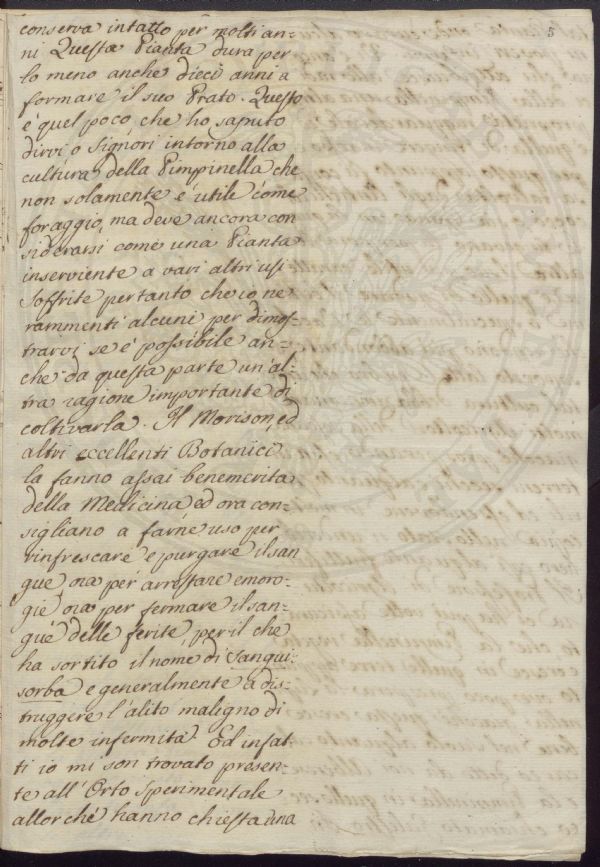 5
conserva intatto per molti an=
ni Questa Pianta dura per
lo meno anche dieci anni a
formare il suo Prato. Questo
e' quel poco, che ho saputo
dirvi, o Signori intorno alla
cultura della Pimpinella che
non solamente e' utile come
foraggio, ma deve ancora con
siderarsi come una Pianta
inserviente a vari altri usi
Soffrite pertanto che io ne
rammenti alcuni per dimos=
trarvi se e' possibile an=
che da questa parte un'al=
tra ragione importante di
coltivarla. Il Morison, ed
altri eccellenti Botanici
la fanno assai benemerita
della Medicina ed ora con=
sigliano a farne uso per
rinfrescare e purgare il san
gue, ora per arrestare emoro=
gie, ora per fermare il san=
gue delle ferite, per il che
ha sortito il nome di Sangui=
sorba e generalmente a dis=
truggere l'alito maligno di
molte infermità. Ed infat=
ti io mi son trovato presen=
te all'Orto Sperimentale
allor chè hanno chiesta una